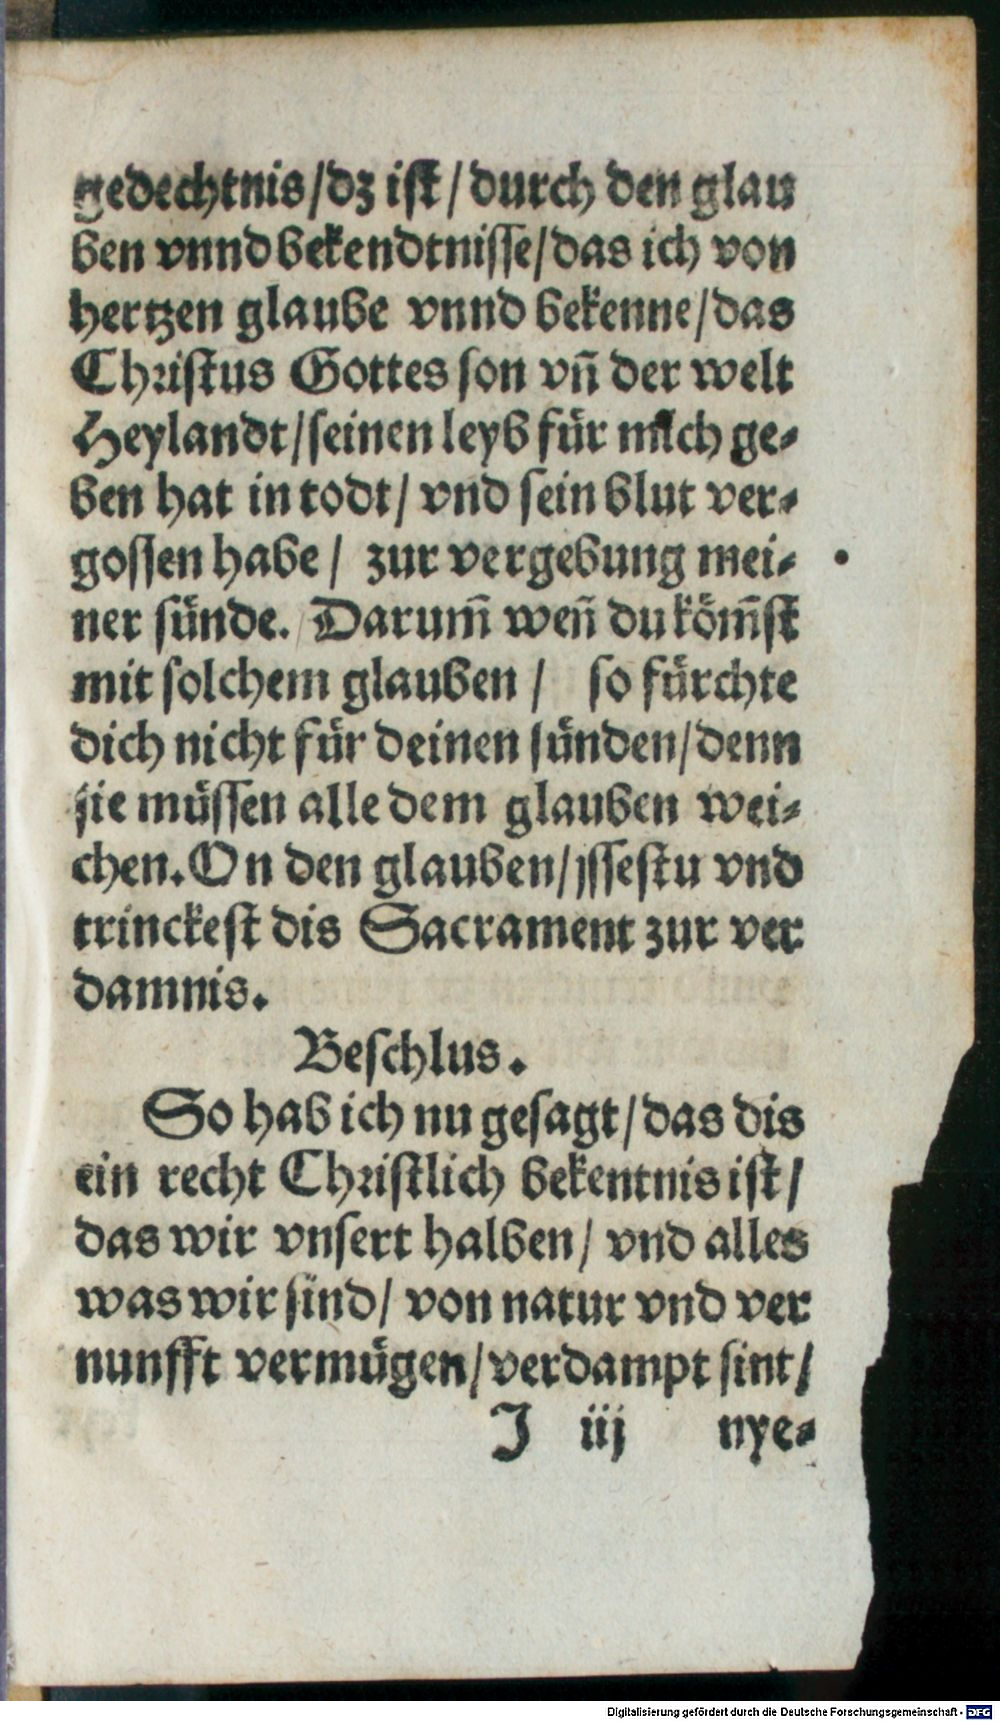 gedechtnis/dz ist/durch den glau
ben vnnd bekendtnisse/das ich von
hertzen glaube vnnd bekenne/das
Christus Gottes son vñ der welt
Heylandt/seinen leyb für mich ge-
ben hat in todt/ vnd sein blut ver-
gossen habe/ zur vergebung mei-
ner sünde. Darum̃ weñ du köm̃st
mit solchem glauben / so fürchte
dich nicht für deinen sünden/denn
sie müssen alle dem glauben wei-
chen. On den glauben/jssestu vnd
trinckest dis Sacrament zur ver
damnis.
Beschlus.
So hab ich nu gesagt/das dis
ein recht Christlich bekentnis ist/
das wir vnsert halben/ vnd alles
was wir sind/ von natur vnd ver
nunfft vermügen/verdampt sint/
J iij nye-
Digitalisierung gefördert durch die Deutsche Forschungsgemeinschaft - DFG